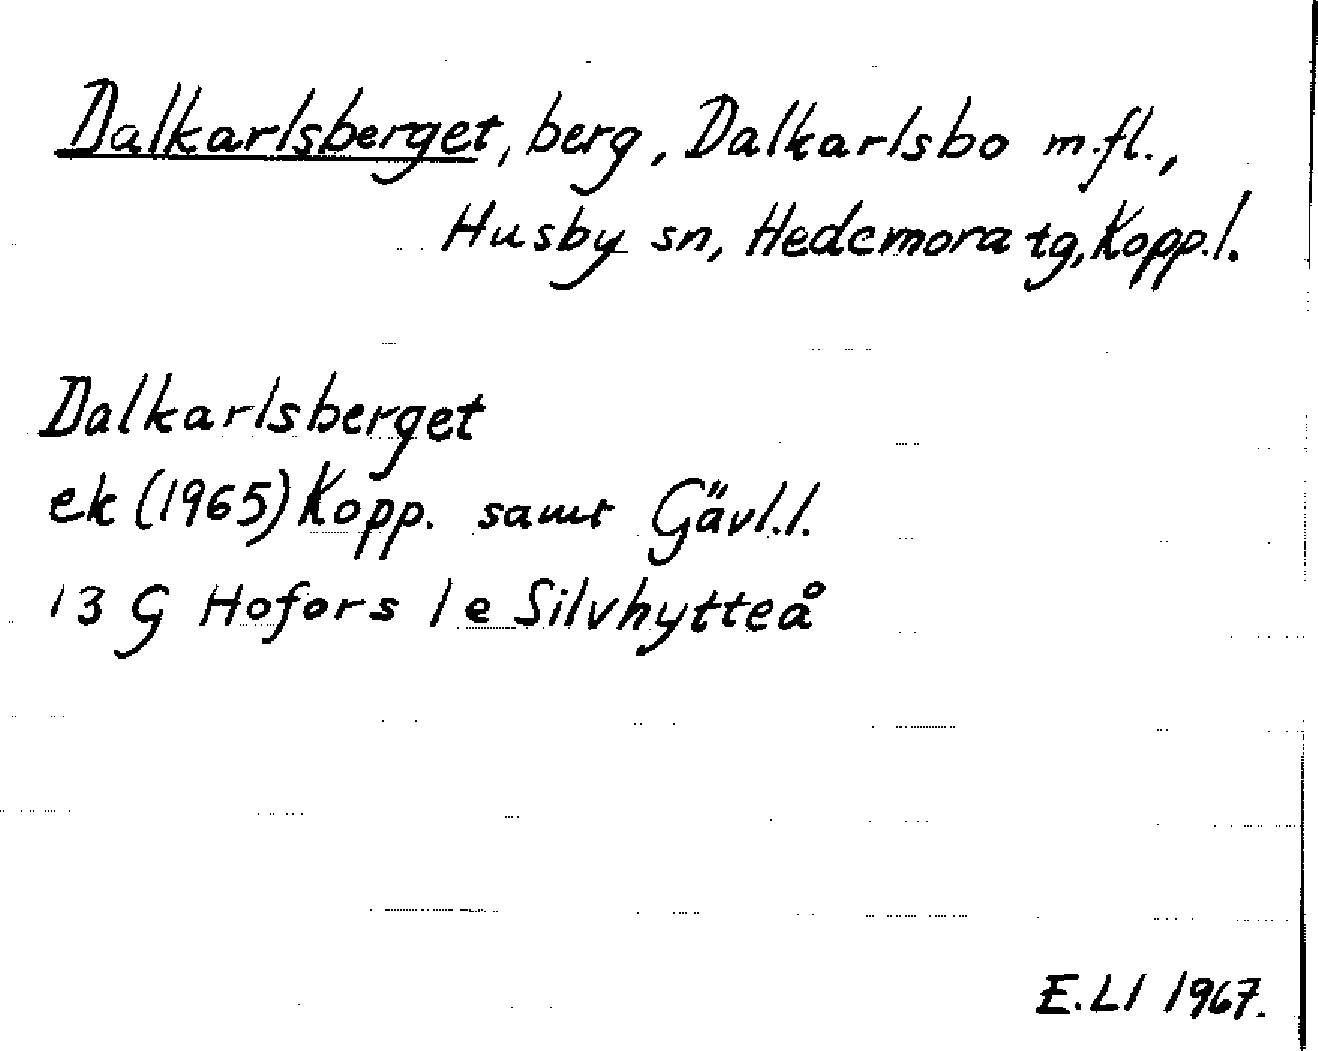 Dalkarlsberget, berg, Dalkarlsbo m.fl.,
Husby sn, Hedemora tg, Kopp.l.
Dalkarlsberget
ek (1965) Kopp. samt Gävl.l.
13 G Hofors 1 e Silvhytteå
E.Ll 1967.